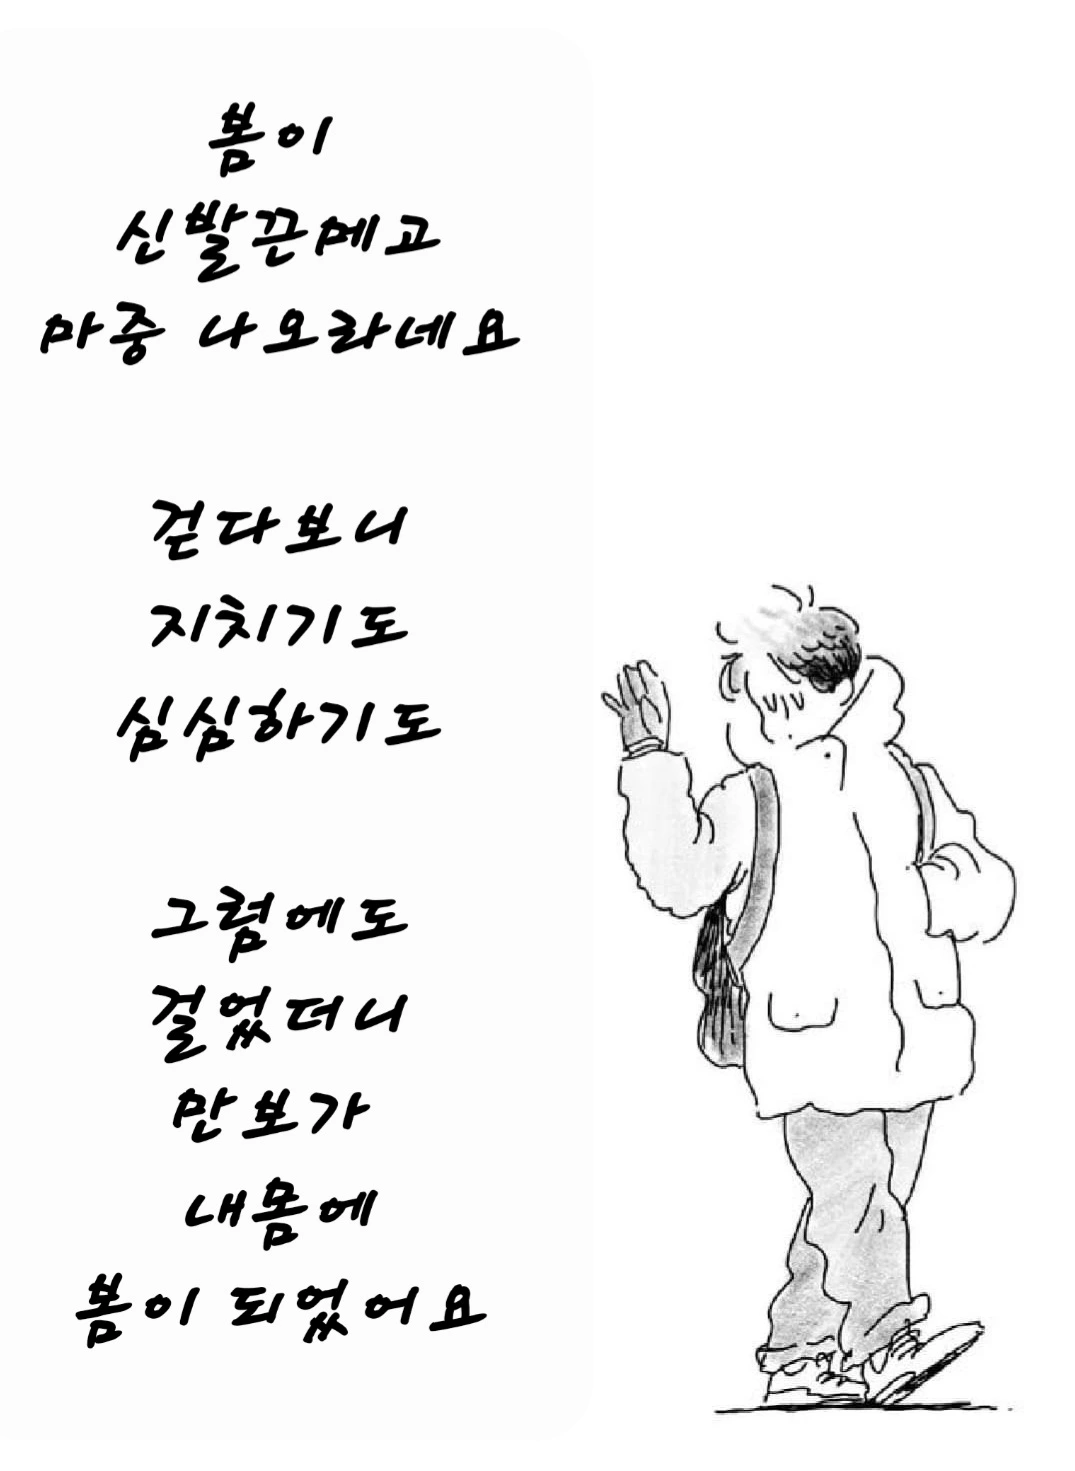 봄이
신발끈메고
마중 나오라네요
걷다보니
지치기도
심심하기도
그럼에도
걸었더니
만보가
내몸에
봄이 되었어요